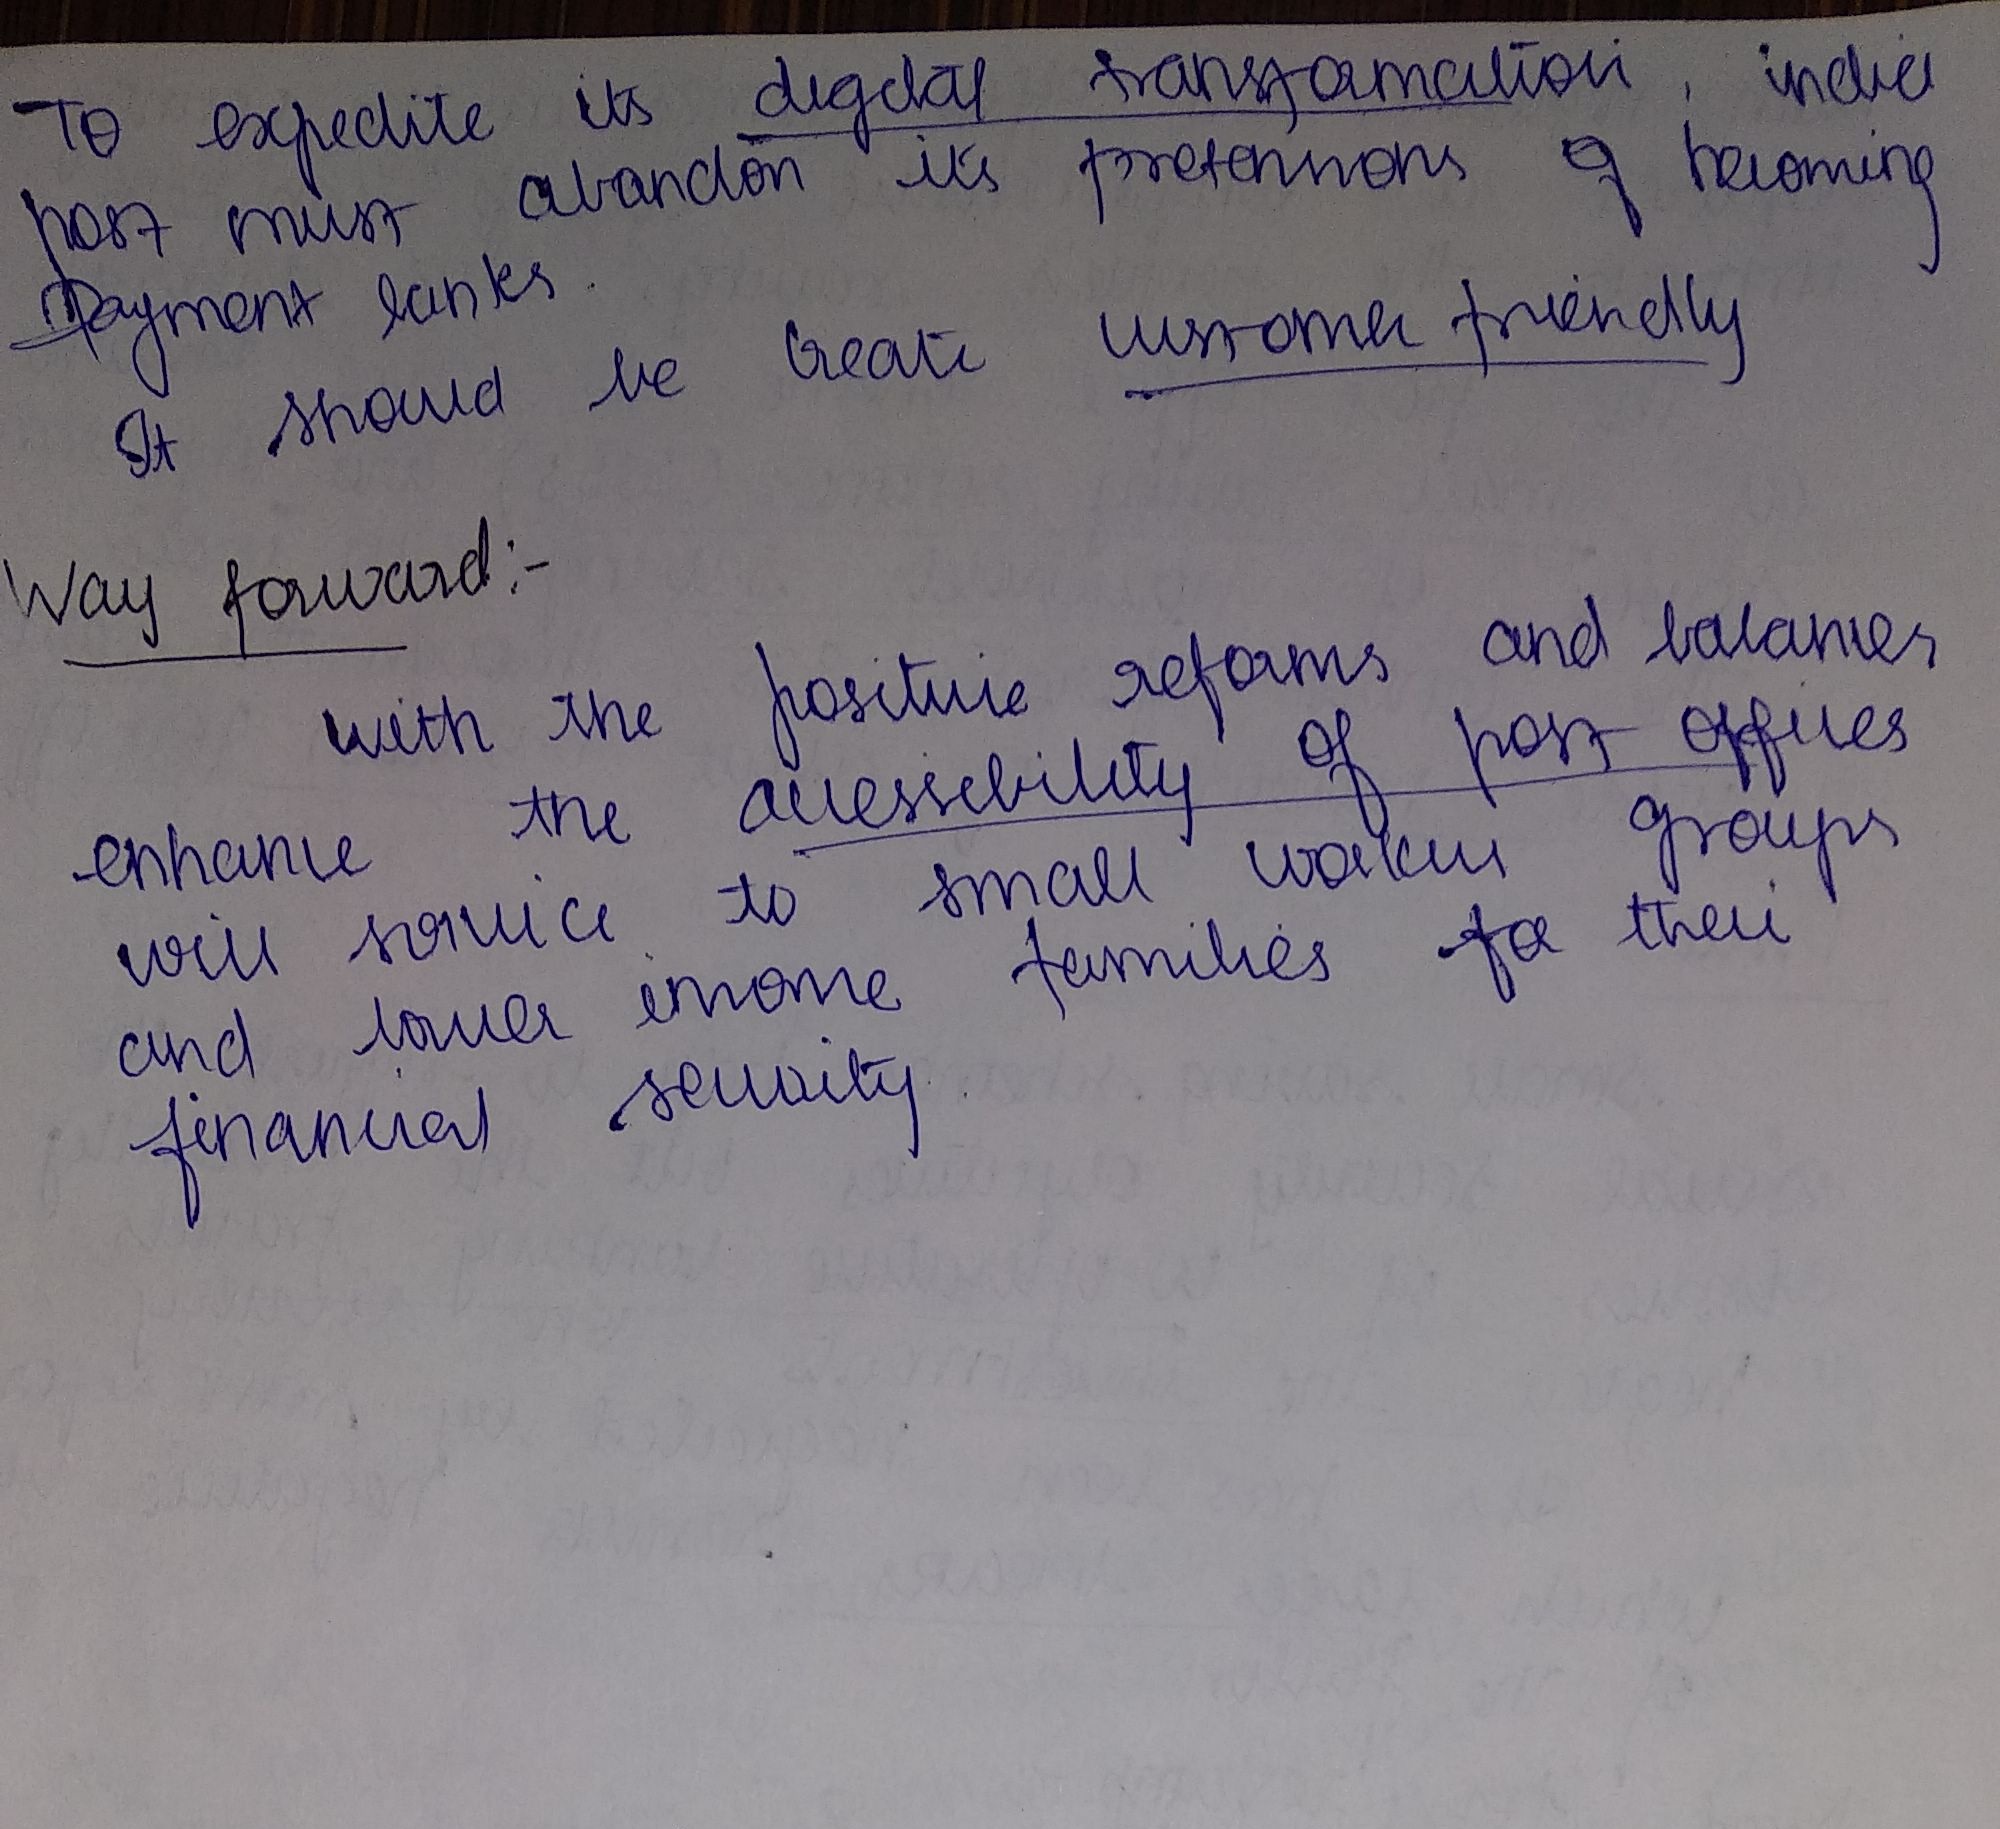 To expedite its digital transformation, india
post must abandon its pretensions of becoming
Payment banks.
It should be create customer friendly
Way forward:-
with the positive reforms and balances
enhance the accessibility of post offices
will service to small worker groups
and lower income families for their
financial security.